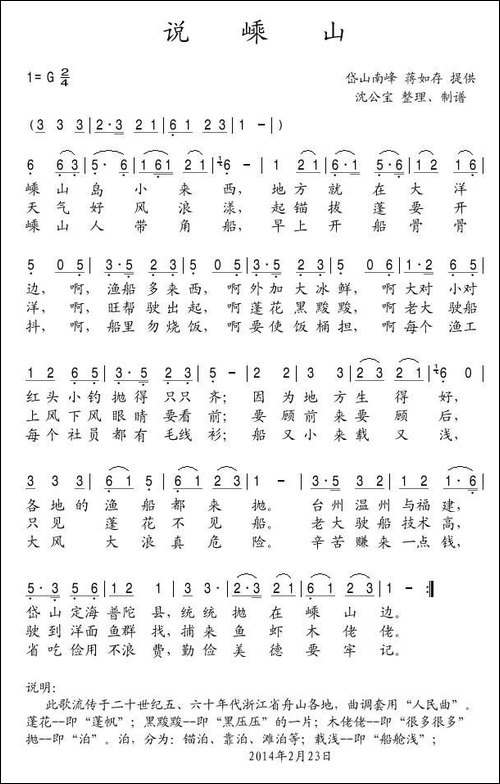 说 嵊 山
1=G 2/4
岱山南峰 蒋如存 提供
沈公宝 整理、制谱
(3 3 3 | 2·3 2 1 | 6 1 2 3 | 1 - |)
6 6 3 | 5· 6 | 1 6 1 2 1 | 6 - | 1 2 1 | 6·1 5·6 | 1 2 1 6 |
嵊 山 岛 小 来 西, 地 方 就 在 大 洋
天 气 好 风 浪 漾, 起 锚 拔 蓬 要 开
嵊 山 人 带 角 船, 早 上 开 船 骨 骨
5 0 5 | 3·5 2 3 | 5 0 5 | 3·5 2 3 | 5 0 5 | 2· 6 5 6 |
边, 啊, 渔船 多 来 西, 啊 外加 大 冰 鲜, 啊 大对 小对
洋, 啊, 旺帮 驶 出 起, 啊 蓬花 黑 黢 黢, 啊 老大 驶船
抖, 啊, 船里 勿 烧 饭, 啊 要使 饭 桶 担, 啊 每个 渔工
1 2 6 5 | 3·5 2 3 | 5 - | 2 2 | 3 3 | 2 3 2 1 | 6 0 |
红 头 小 钓 抛 得 只 只 齐; 因 为 地 方 生 得 好,
上 风 下 风 眼 睛 要 看 前; 要 顾 前 来 要 顾 后,
每 个 社 员 都 有 毛 线 衫; 船 又 小 来 载 又 浅,
3 3 3 | 2·3 2 1 | 6 1 2 3 | 1 - | 3·5 3 2 | 1 2 1·6 |
各 地 的 渔 船 都 来 抛。 台 州 温 州 与 福 建,
只 见 蓬 花 不 见 船。 老 大 驶 船 技 术 高,
大 风 大 浪 真 危 险。 辛 苦 赚 来 一 点 钱,
5·3 5 6 | 1 2 1 | 3 3 3 | 2·3 2 1 | 6 1 2 3 | 1 - :||
岱 山 定海 普陀 县, 统 统 抛 在 嵊 山 边。
驶 到 洋面 鱼群 找, 捕 来 鱼 虾 木 佬 佬。
省 吃 俭用 不浪 费, 勤 俭 美 德 要 牢 记。
说明:
此歌流传于二十世纪五、六十年代浙江省舟山各地, 曲调套用“人民曲”。
蓬花--即“蓬帆”; 黑黢黢--即“黑压压”的一片; 木佬佬--即“很多很多”
抛--即“泊”。泊, 分为: 锚泊、靠泊、滩泊等; 载浅--即“船舱浅”;
2014年2月23日